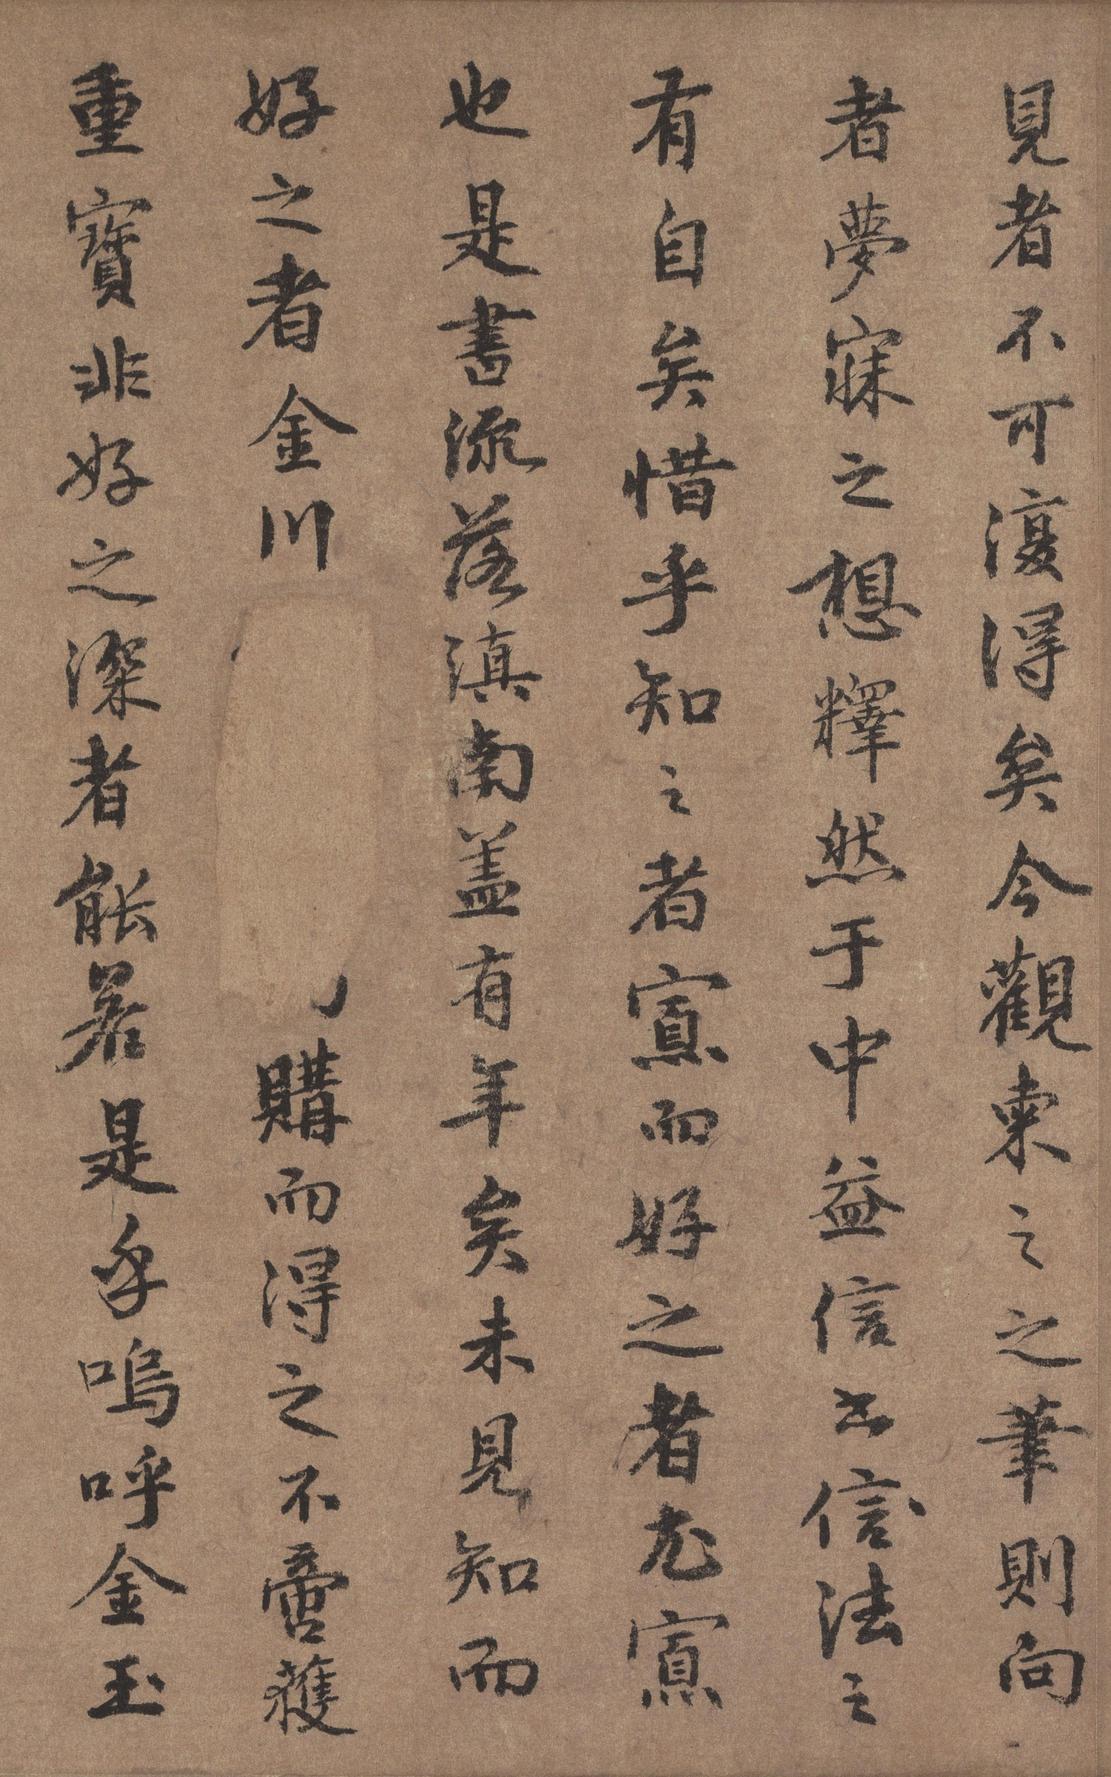 見者不可復得矣今觀柬之之筆則向
者夢寐之想釋然于中益信書信法之
有自矣惜乎知之者寡而好之者尤寡
也是書流落滇南盖有年矣未見知而
好之者金川購而得之不啻獲
重寶非好之深者能若是乎嗚呼金玉